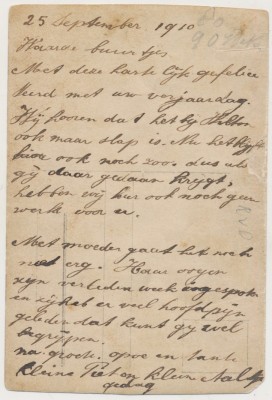 25 September 1910
Waarde buurtjes
Met deze hartelijk gefelici
teerd met uw verjaardag.
Wij hooren dat het by
ook maar slap is. Nu het
hier ook nog zoo. dus als
gij daar gedaan krygt,
hebben wij hier ook noch geen
werk voor u.
Met moeder gaat het noch
niet erg. Haar oogen
zyn verleden week ingespoten
en zij heb er veel hoofdpijn
geleden dat kunt gy wel
begrijpen.
na groete. opoe en tante
kleine Piet en klein Aaltje